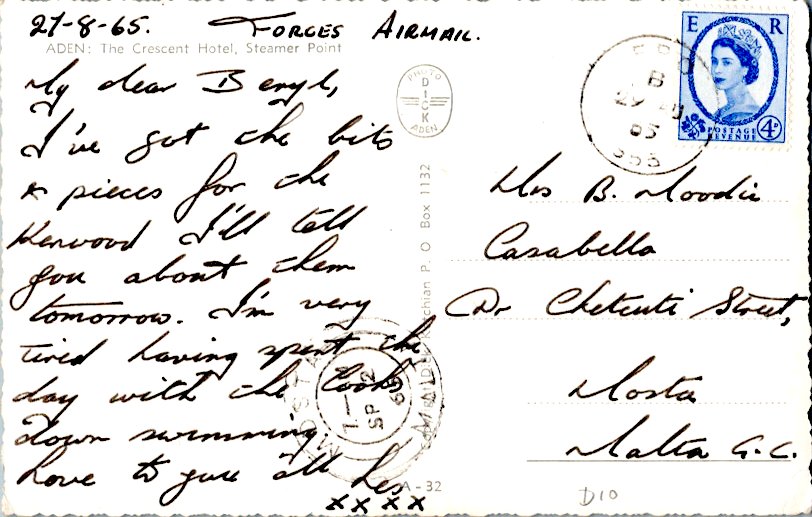 27-8-65. FORCES AIRMAIL.
ADEN: The Crescent Hotel, Steamer Point
My dear Beryl,
I've got the bits
& pieces for the
Kenwood I'll tell
you about them
tomorrow. I'm very
tired having spent the
day with the Cooks
down swimming
Love to you all
xxxx
PHOTO
DICK
ADEN
P. O. Box 1132
A-32
E R
POSTAGE
REVENUE
4D
B
65
MOSTA
SP 2
65
MALTA
Mrs B. Moodie
Casabella
Dr Chetcuti Street,
Mosta
Malta G.C.
D10